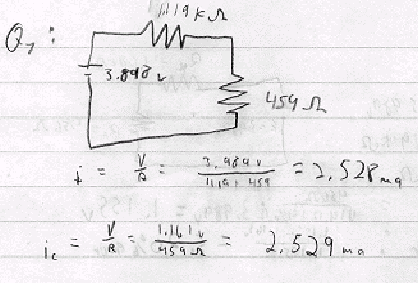 Q₁ :
1.119 K Ω
3.898 v
459 Ω
i = V/R = 3.989 v / 1119 + 459 = 2.528 ma
i_c = V/R = 1.161 v / 459 Ω = 2.529 ma